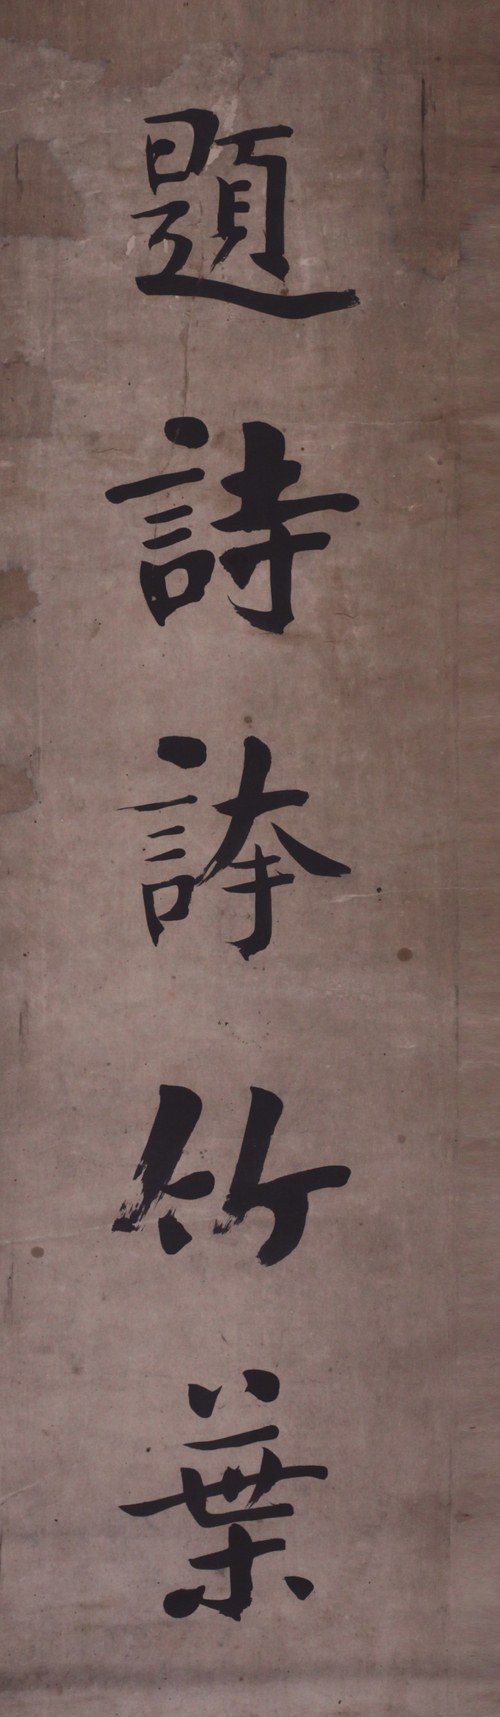 題詩誇竹葉